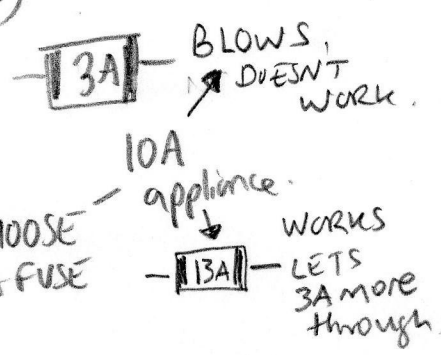 3A
BLOWS,
DOESNT
WORK.
10A
appliance.
HOOSE
FUSE
13A
WORKS
LETS
3A more
through.